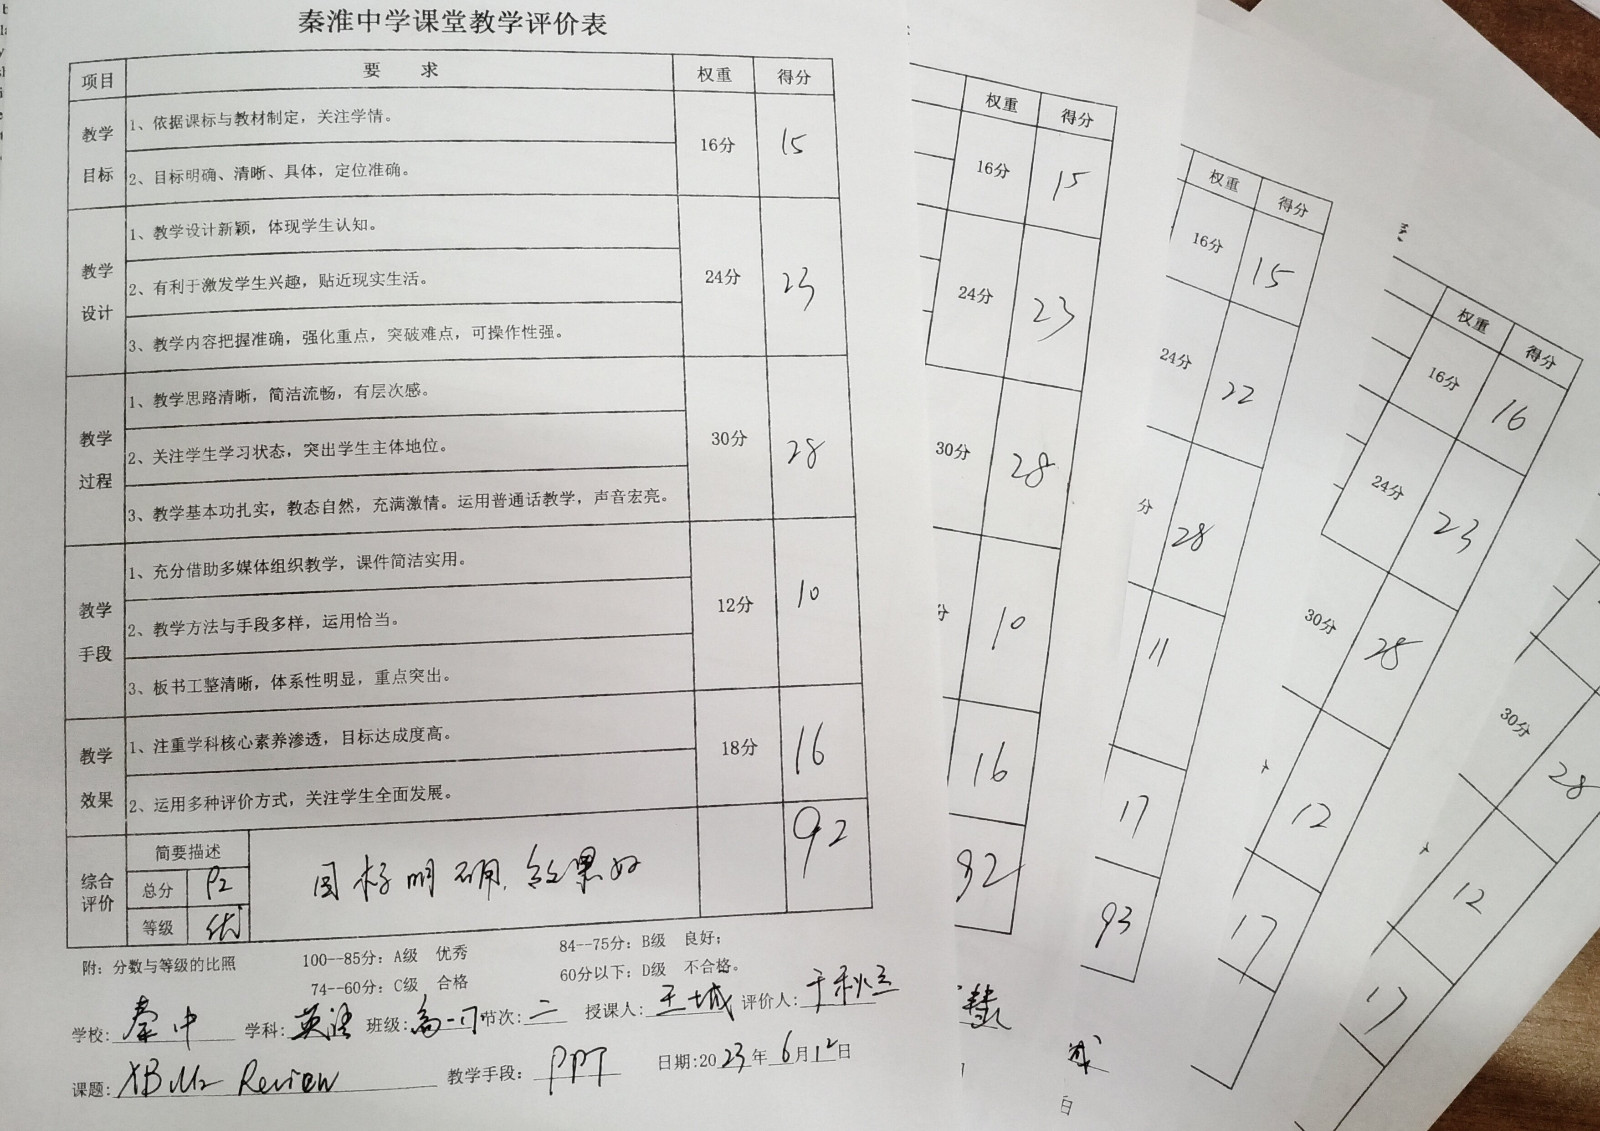 秦淮中学课堂教学评价表
项目 要 求 权重 得分
教学目标
1、依据课标与教材制定，关注学情。
2、目标明确、清晰、具体，定位准确。
16分 15
教学设计
1、教学设计新颖，体现学生认知。
2、有利于激发学生兴趣，贴近现实生活。
3、教学内容把握准确，强化重点，突破难点，可操作性强。
24分 23
教学过程
1、教学思路清晰，简洁流畅，有层次感。
2、关注学生学习状态，突出学生主体地位。
3、教学基本功扎实，教态自然，充满激情。运用普通话教学，声音宏亮。
30分 28
教学手段
1、充分借助多媒体组织教学，课件简洁实用。
2、教学方法与手段多样，运用恰当。
3、板书工整清晰，体系性明显，重点突出。
12分 10
教学效果
1、注重学科核心素养渗透，目标达成度高。
2、运用多种评价方式，关注学生全面发展。
18分 16
综合评价
简要描述
总分 92
等级 优
目标明确，效果好
92
附：分数与等级的比照 100--85分：A级 优秀 84--75分：B级 良好；
74--60分：C级 合格 60分以下：D级 不合格。
学校：秦中 学科：英语 班级：高一 节次：二 授课人：王城 评价人：于秋兰
课题： Review 教学手段：PPT 日期：2023年6月12日
权重 得分
16分 15
24分 23
30分 28
分 10
16
92
慧
权重 得分
16分 15
24分 22
分 28
11
17
93
城
日
权重 得分
16分 16
24分 23
30分 28
12
17
30分 28
12
17